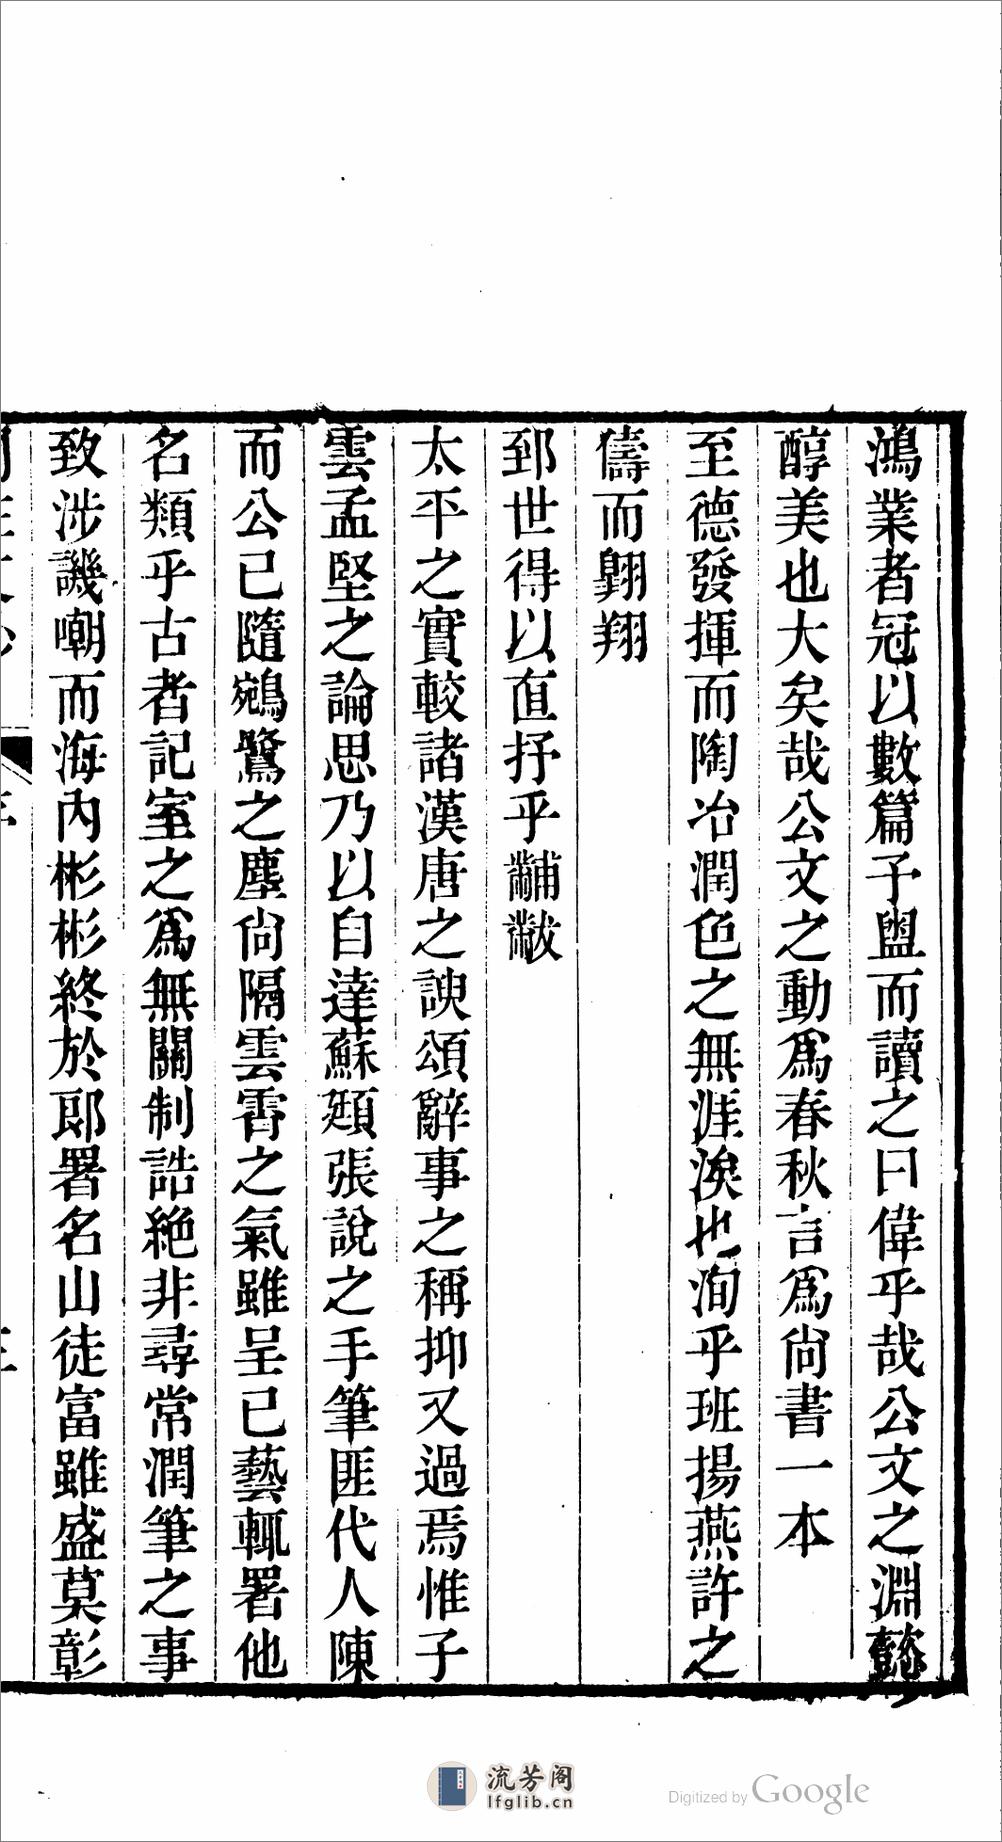 鴻業者冠以數篇子盥而讀之曰偉乎哉公文之淵懿
醇美也大矣哉公文之動爲春秋言爲尙書一本
至德發揮而陶冶潤色之無涯涘也洵乎班揚燕許之
儔而翺翔
郅世得以直抒乎黼黻
太平之實較諸漢唐之諛頌辭事之稱抑又過焉惟子
雲孟堅之論思乃以自達蘇頲張說之手筆匪代人陳
而公已隨鵷鷺之塵尙隔雲霄之氣雖呈已藝輒署他
名類乎古者記室之爲無關制誥絶非尋常潤筆之事
致涉譏嘲而海內彬彬終於郞署名山徒富雖盛莫彰
流芳阁
lfglib.cn
Digitized by Google